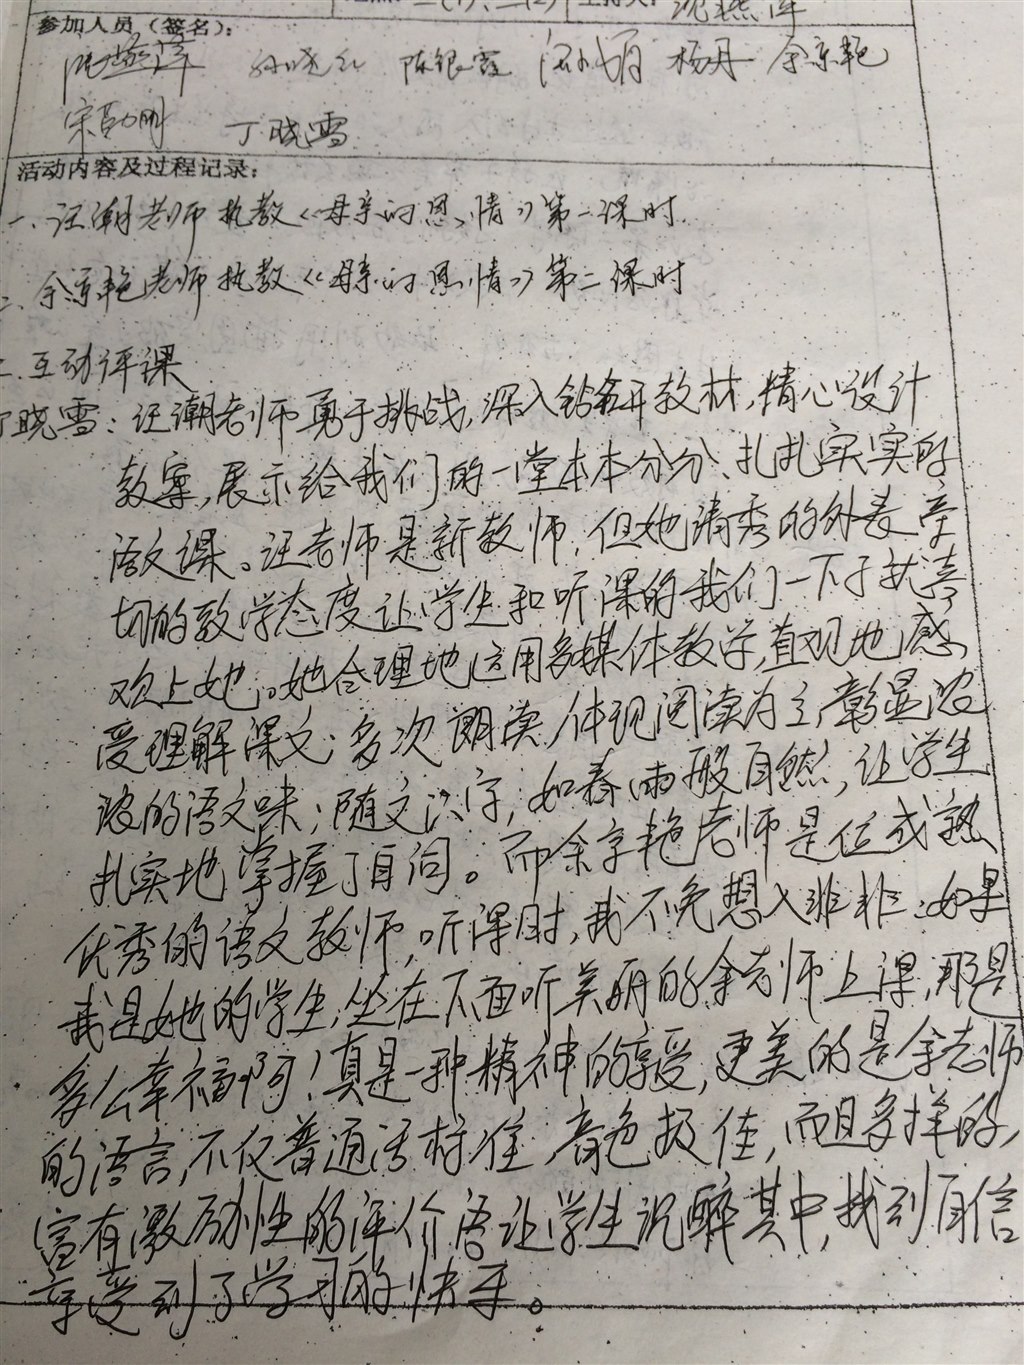 二(1)、二(2) 主持人:
参加人员（签名）：
陈银霞 杨丹 余京艳
宋勤刚 丁晓雪
活动内容及过程记录：
一、汪潮老师执教《母亲的恩情》第一课时
二、余京艳老师执教《母亲的恩情》第二课时
三、互动评课
丁晓雪：汪潮老师勇于挑战，深入钻研教材，精心设计
教案，展示给我们的一堂本本分分、扎扎实实的
语文课。汪老师是新教师，但她清秀的外表亲
切的教学态度让学生和听课的我们一下子就喜
欢上她。她合理地运用多媒体教学，直观地感
受理解课文；多次朗读，体现阅读为主，彰显浓
浓的语文味；随文识字，如春雨般自然，让学生
扎实地掌握了自词。而余京艳老师是位成熟
优秀的语文教师，听课时，我不免想入非非：如果
我是她的学生，坐在下面听美丽的余老师上课，那是
多么幸福啊！真是一种精神的享受，更美的是余老师
的语言，不仅普通话标准，音色极佳，而且多样的，
富有激励性的评价语让学生沉醉其中，找到自信
享受到了学习的快乐。